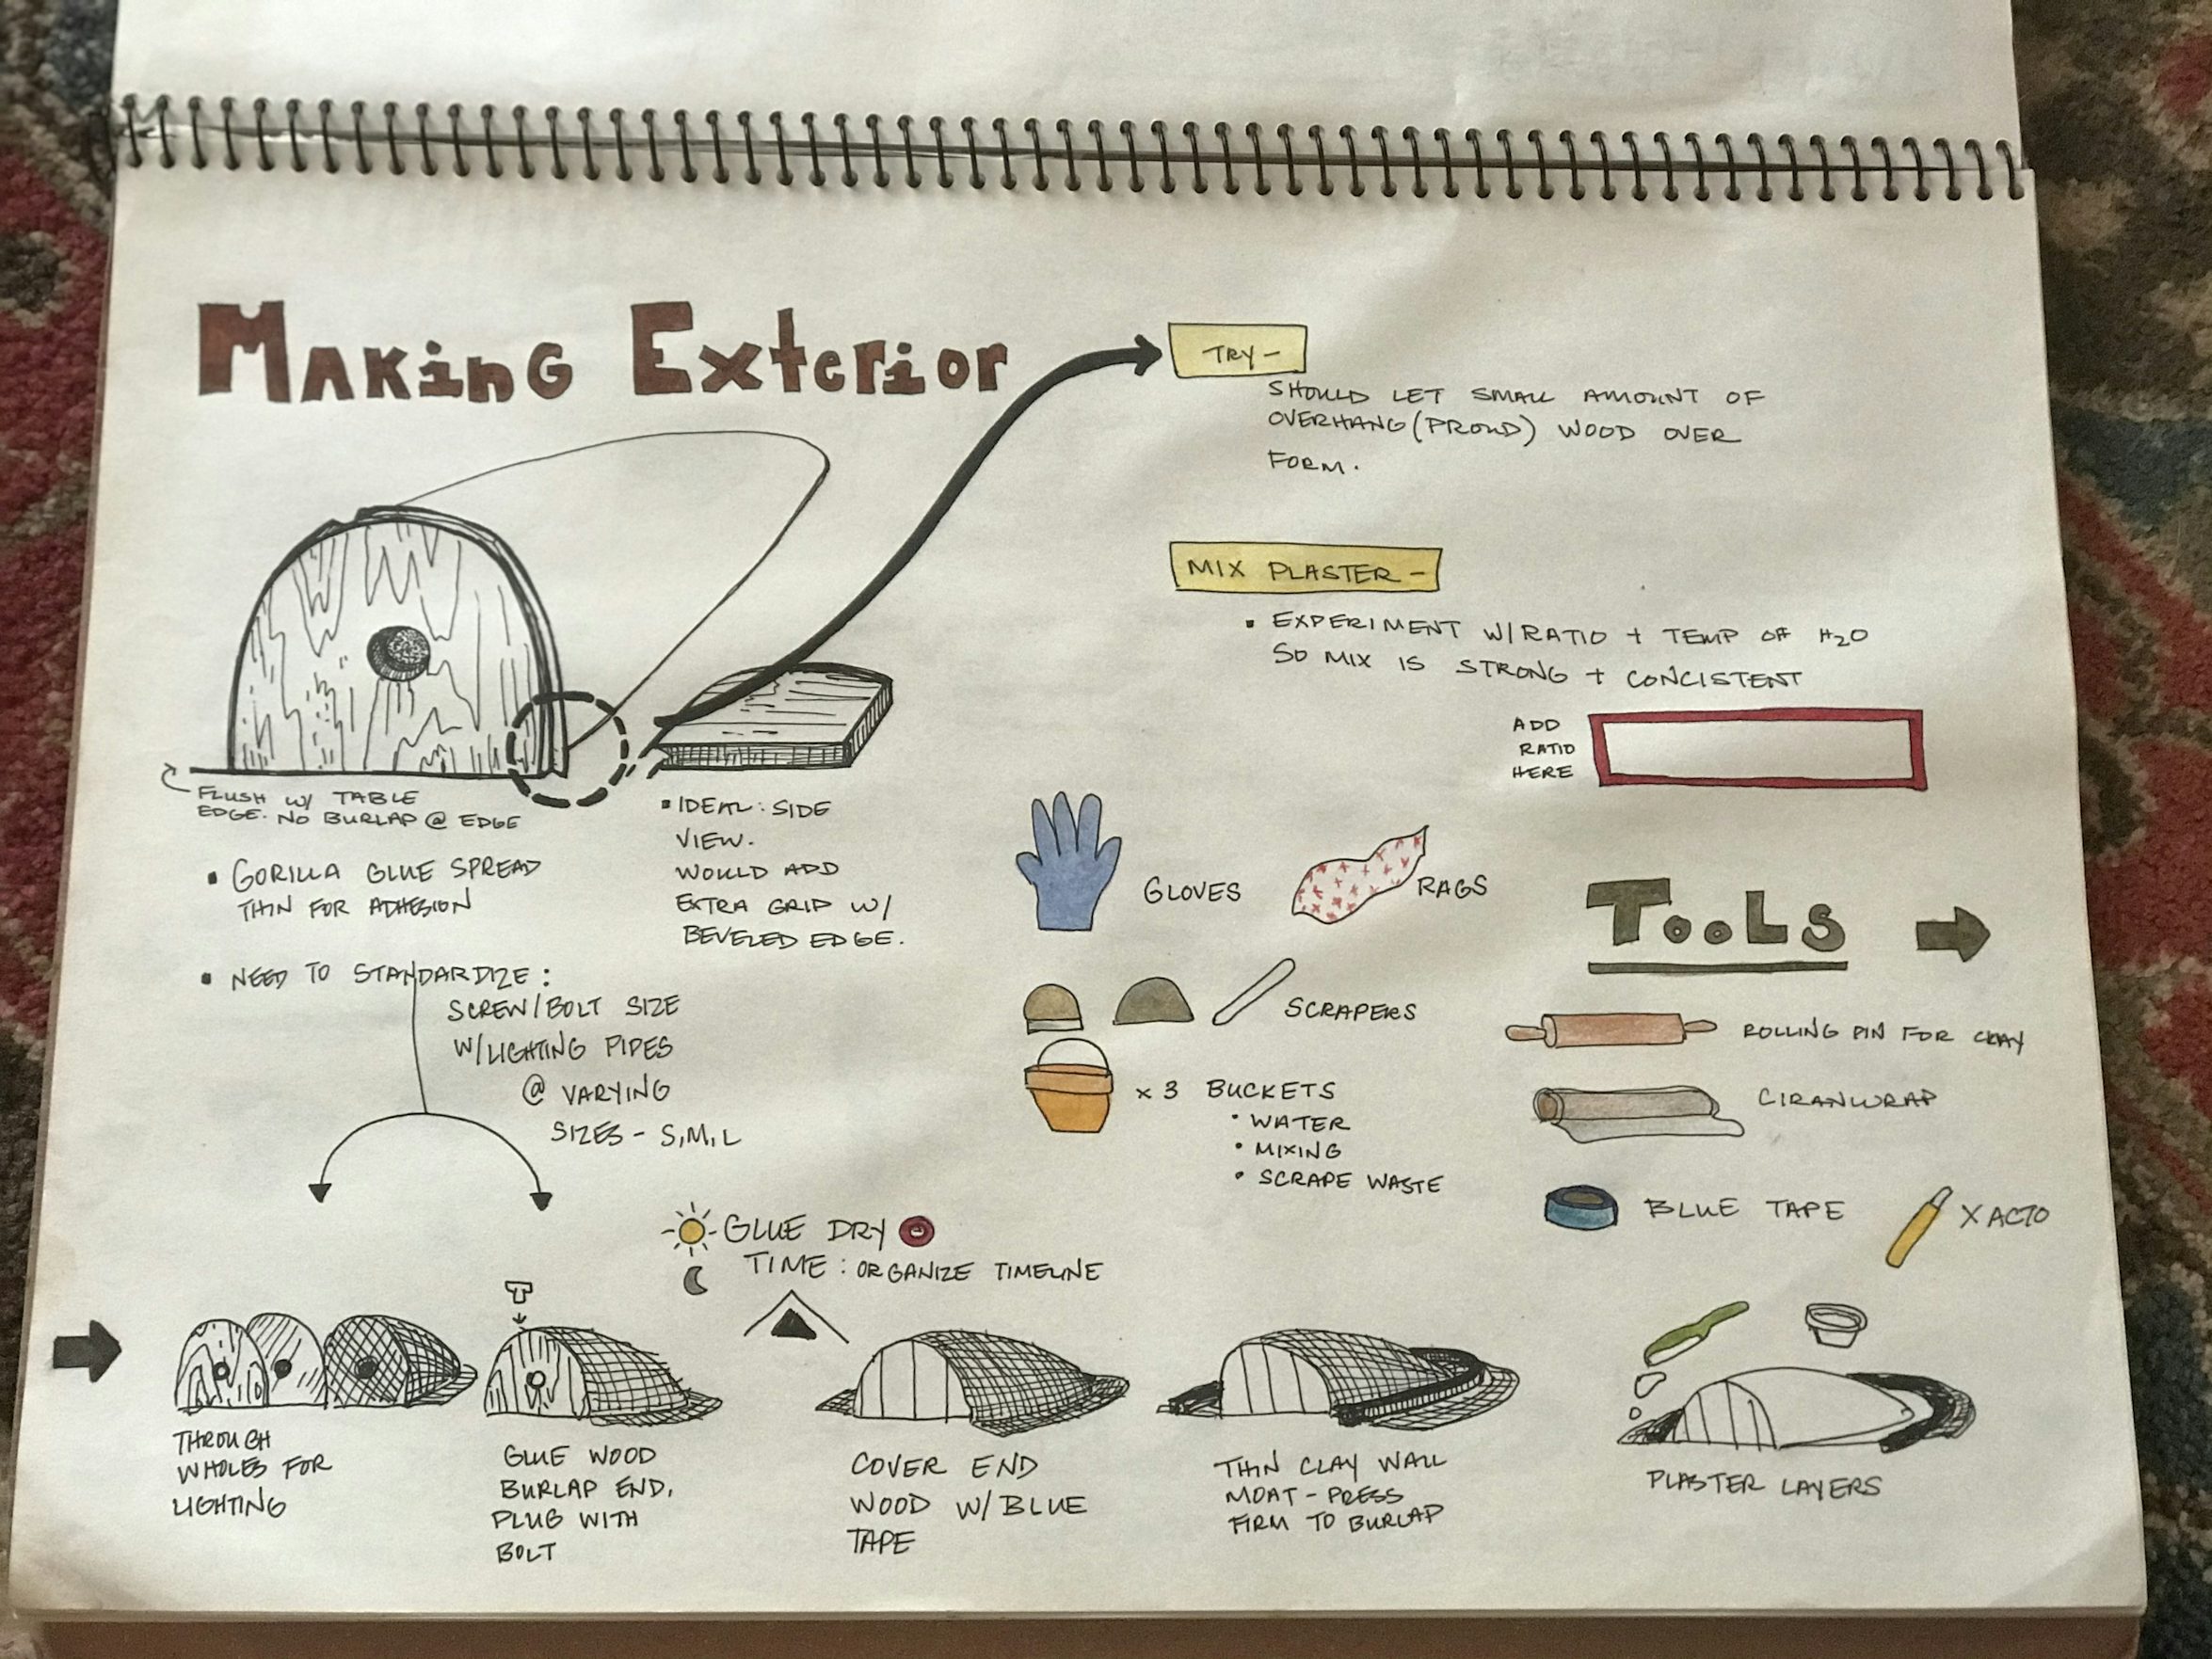 MAKinG Exterior
TRY -
SHOULD LET SMALL AMOUNT OF
OVERHANG (PROUD) WOOD OVER
FORM.
MIX PLASTER -
▪ EXPERIMENT W/RATIO + TEMP OF H2O
SO MIX IS STRONG + CONCISTENT
ADD
RATIO
HERE
FLUSH W/ TABLE
EDGE. NO BURLAP @ EDGE
▪ GORILLA GLUE SPREAD
THIN FOR ADHESION
▪ IDEAL: SIDE
VIEW.
WOULD ADD
EXTRA GRIP W/
BEVELED EDGE.
▪ NEED TO STANDARDIZE:
SCREW/BOLT SIZE
W/LIGHTING PIPES
@ VARYING
SIZES - S,M,L
GLOVES
RAGS
SCRAPERS
x 3 BUCKETS
• WATER
• MIXING
• SCRAPE WASTE
TooLS
ROLLING PIN FOR CLAY
CIRANWRAP
BLUE TAPE
X ACTO
GLUE DRY
TIME: ORGANIZE TIMELINE
THROUGH
WHOLES FOR
LIGHTING
GLUE WOOD
BURLAP END,
PLUG WITH
BOLT
COVER END
WOOD W/ BLUE
TAPE
THIN CLAY WALL
MOAT - PRESS
FIRM TO BURLAP
PLASTER LAYERS